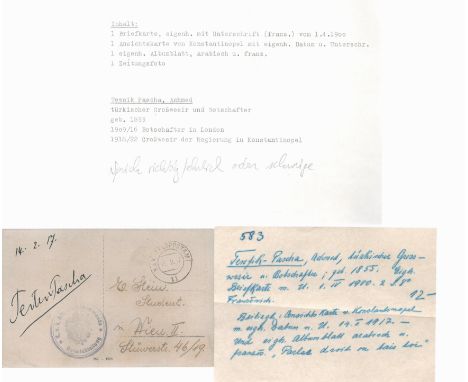 Inhalt:
1 Briefkarte, eigenh. mit Unterschrift (franz.) vom 1.4.1900
1 Ansichtskarte von Konstantinopel mit eigenh. Datum u. Unterschr.
1 eigenh. Albumblatt, arabisch u. franz.
1 Zeitungsfoto
Tewfik Pascha, Achmed
türkischer Großwesir und Botschafter
geb. 1855
1909/16 Botschafter in London
1918/22 Großwesir der Regierung in Konstantinopel
Sprich richtig
oder schweige
14. 2. 17.
Student
in Wien II.
Stuwerstr. 46/19
583
Pascha, Achmed, türkischer Gross-
wesir u. Botschafter; geb. 1855. Eigh.
Briefkarte m. U. 1. IV 1900. 2 S. 8°
Französisch. 12.-
Beiliegt: Ansichts Karte v. Konstantinopel
m. eigh. Datum u. U. 14. II 1917. -
Und eigh. Albumblatt arabisch u.
franzos. "Parlez droit ou tais toi"